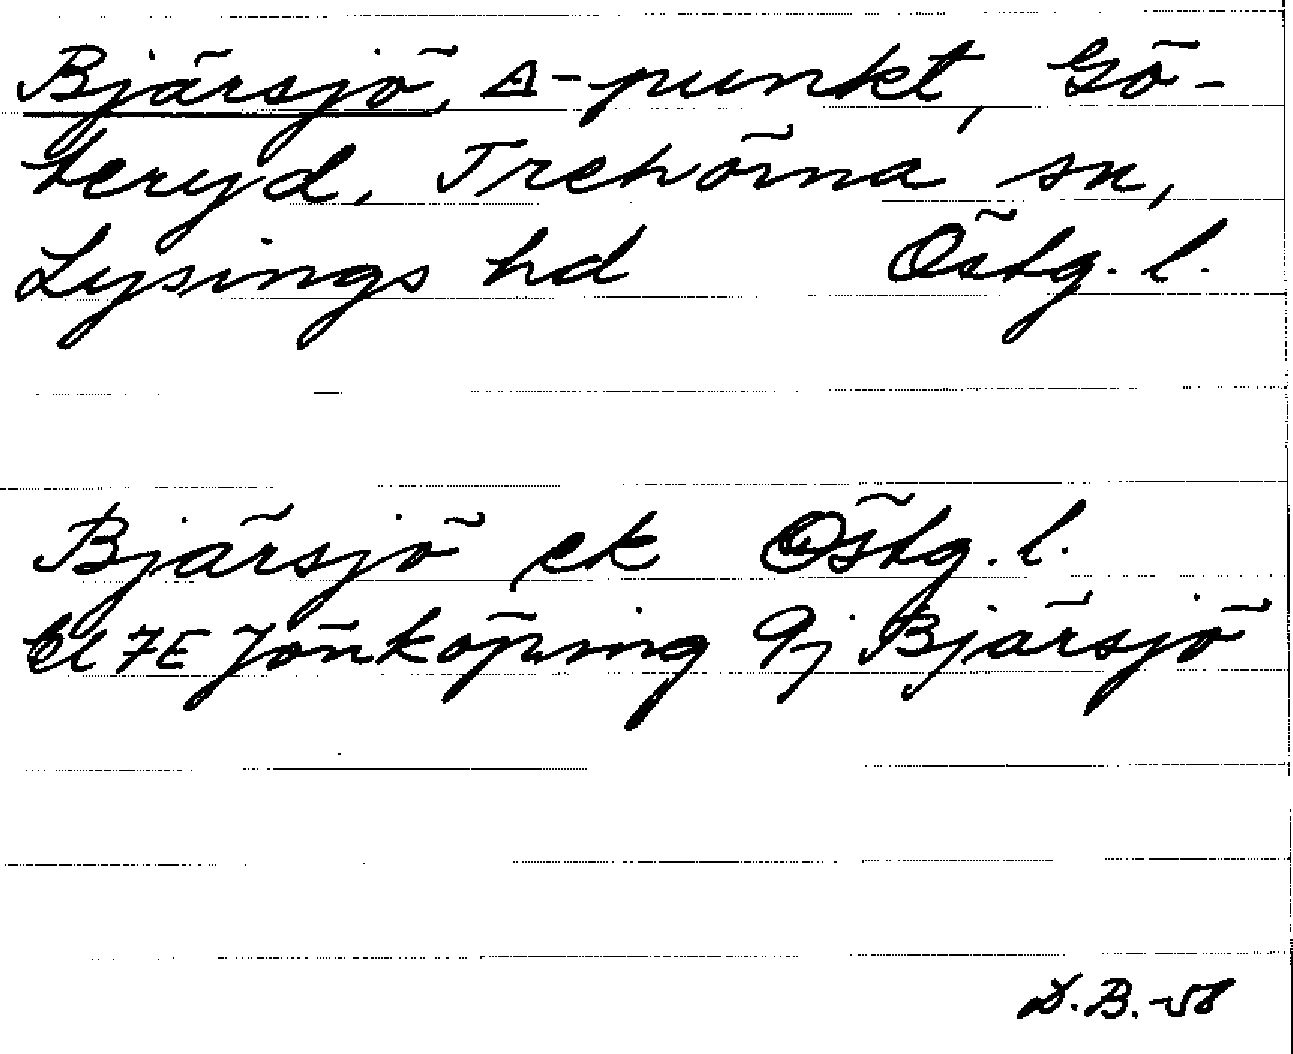 Bjärsjö, Δ-punkt, Gö-
teryd, Trehörna sn,
Lysings hd Östg. l.
Bjärsjö ek Östg. l.
bl 7E Jönköping 9j Bjärsjö
D.B.-58